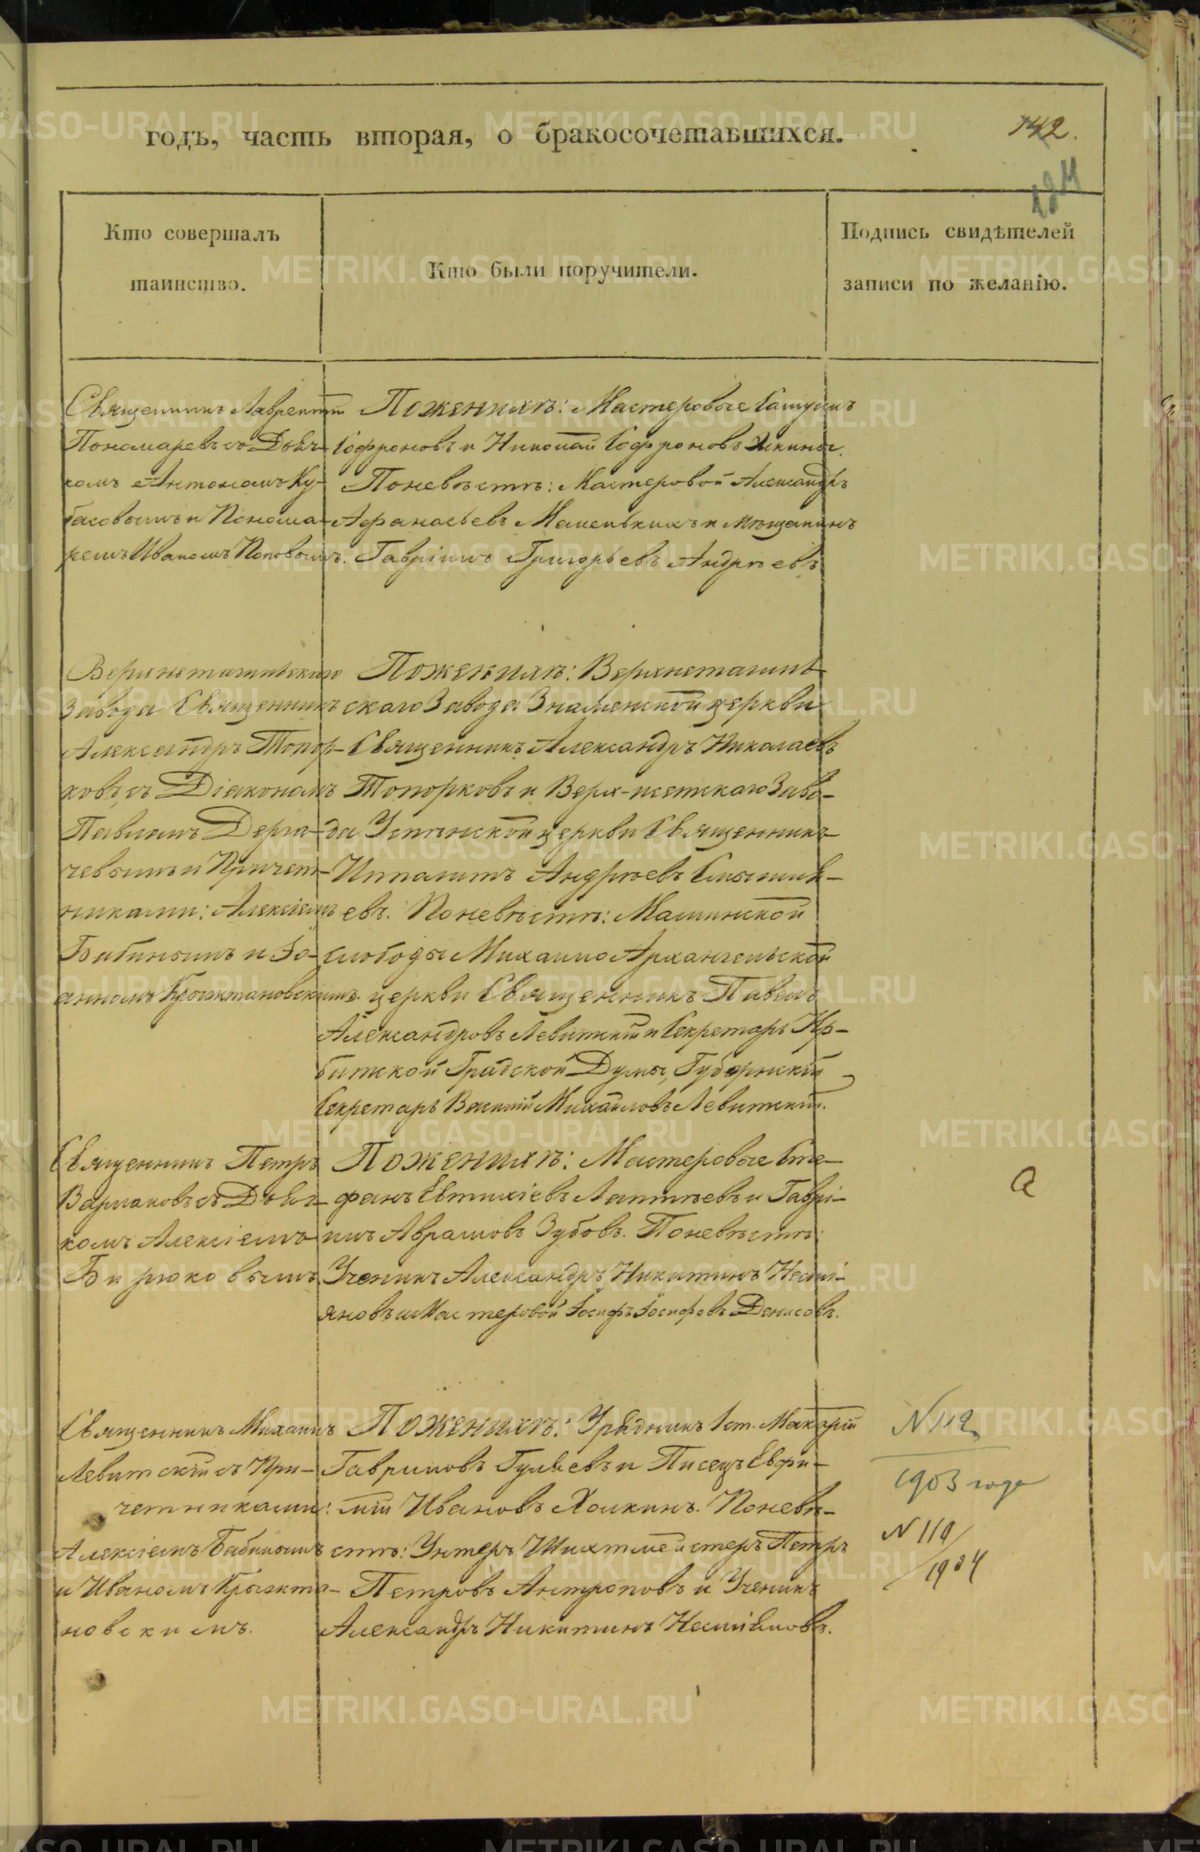 годъ, часть вторая, о бракосочетавшихся.
142.
124
Кто совершалъ
таинство.
Кто были поручители.
Подпись свидѣтелей
записи по желанію.
Священникъ Лаврентій
Пономаревъ съ Дьяч-
комъ Антономъ Ку-
басовымъ и Понома-
ремъ Иваномъ Поповымъ.
По женихѣ: Мастеровые
Софроновъ и Николай Софроновъ
По невѣстѣ: Мастеровой Александръ
Афанасьевъ Маленькихъ и Мѣщанинъ
Гавріилъ Григорьевъ Андреевъ
Верхнетагильскаго
Завода Священникъ
Александръ Топор-
ковъ съ Діакономъ
Павломъ Дерга-
чевымъ и Причет-
никами: Алексіемъ
Бабинымъ и Іо-
анномъ
По женихѣ: Верхнетагиль-
скаго Завода Знаменской церкви
Священникъ Александръ Николаевъ
Топорковъ и Верх-исетскаго Заво-
да Успенской церкви Священникъ
Ипполитъ Андреевъ
евъ. По невѣстѣ:
слободы Михаило Архангельской
церкви Священникъ Павелъ
Александровъ Левитскій и Секретарь Ир-
битской Градской Думы, Губернскій
Секретарь Василій Михайловъ Левитскій.
Священникъ Петръ
Варлаковъ съ Дьяч-
комъ Алексіемъ
Бирюковымъ
По женихѣ: Мастеровые Сте-
фанъ Евтихіевъ Лаптевъ и Гаврі-
илъ Аврамовъ Зубовъ. По невѣстѣ:
Ученикъ Александръ Никитинъ Несмі-
яновъ и Мастеровой Іосифъ Іосифовъ Денисовъ.
а
Священникъ Михаилъ
Левитскій съ При-
четниками:
Алексіемъ Бабинымъ
и Иваномъ
новскимъ.
По женихѣ: Урядникъ 1 ст. Макарій
Гавриловъ Гуляевъ и Писецъ Евфи-
мій Ивановъ Холкинъ. По невѣ-
стѣ: Унтеръ Шихтмейстеръ Петръ
Петровъ Антроповъ и Ученикъ
Александръ Никитинъ Несміяновъ.
N 112
1903 года
N 110
1904
METRIKI.GASO-URAL.RU